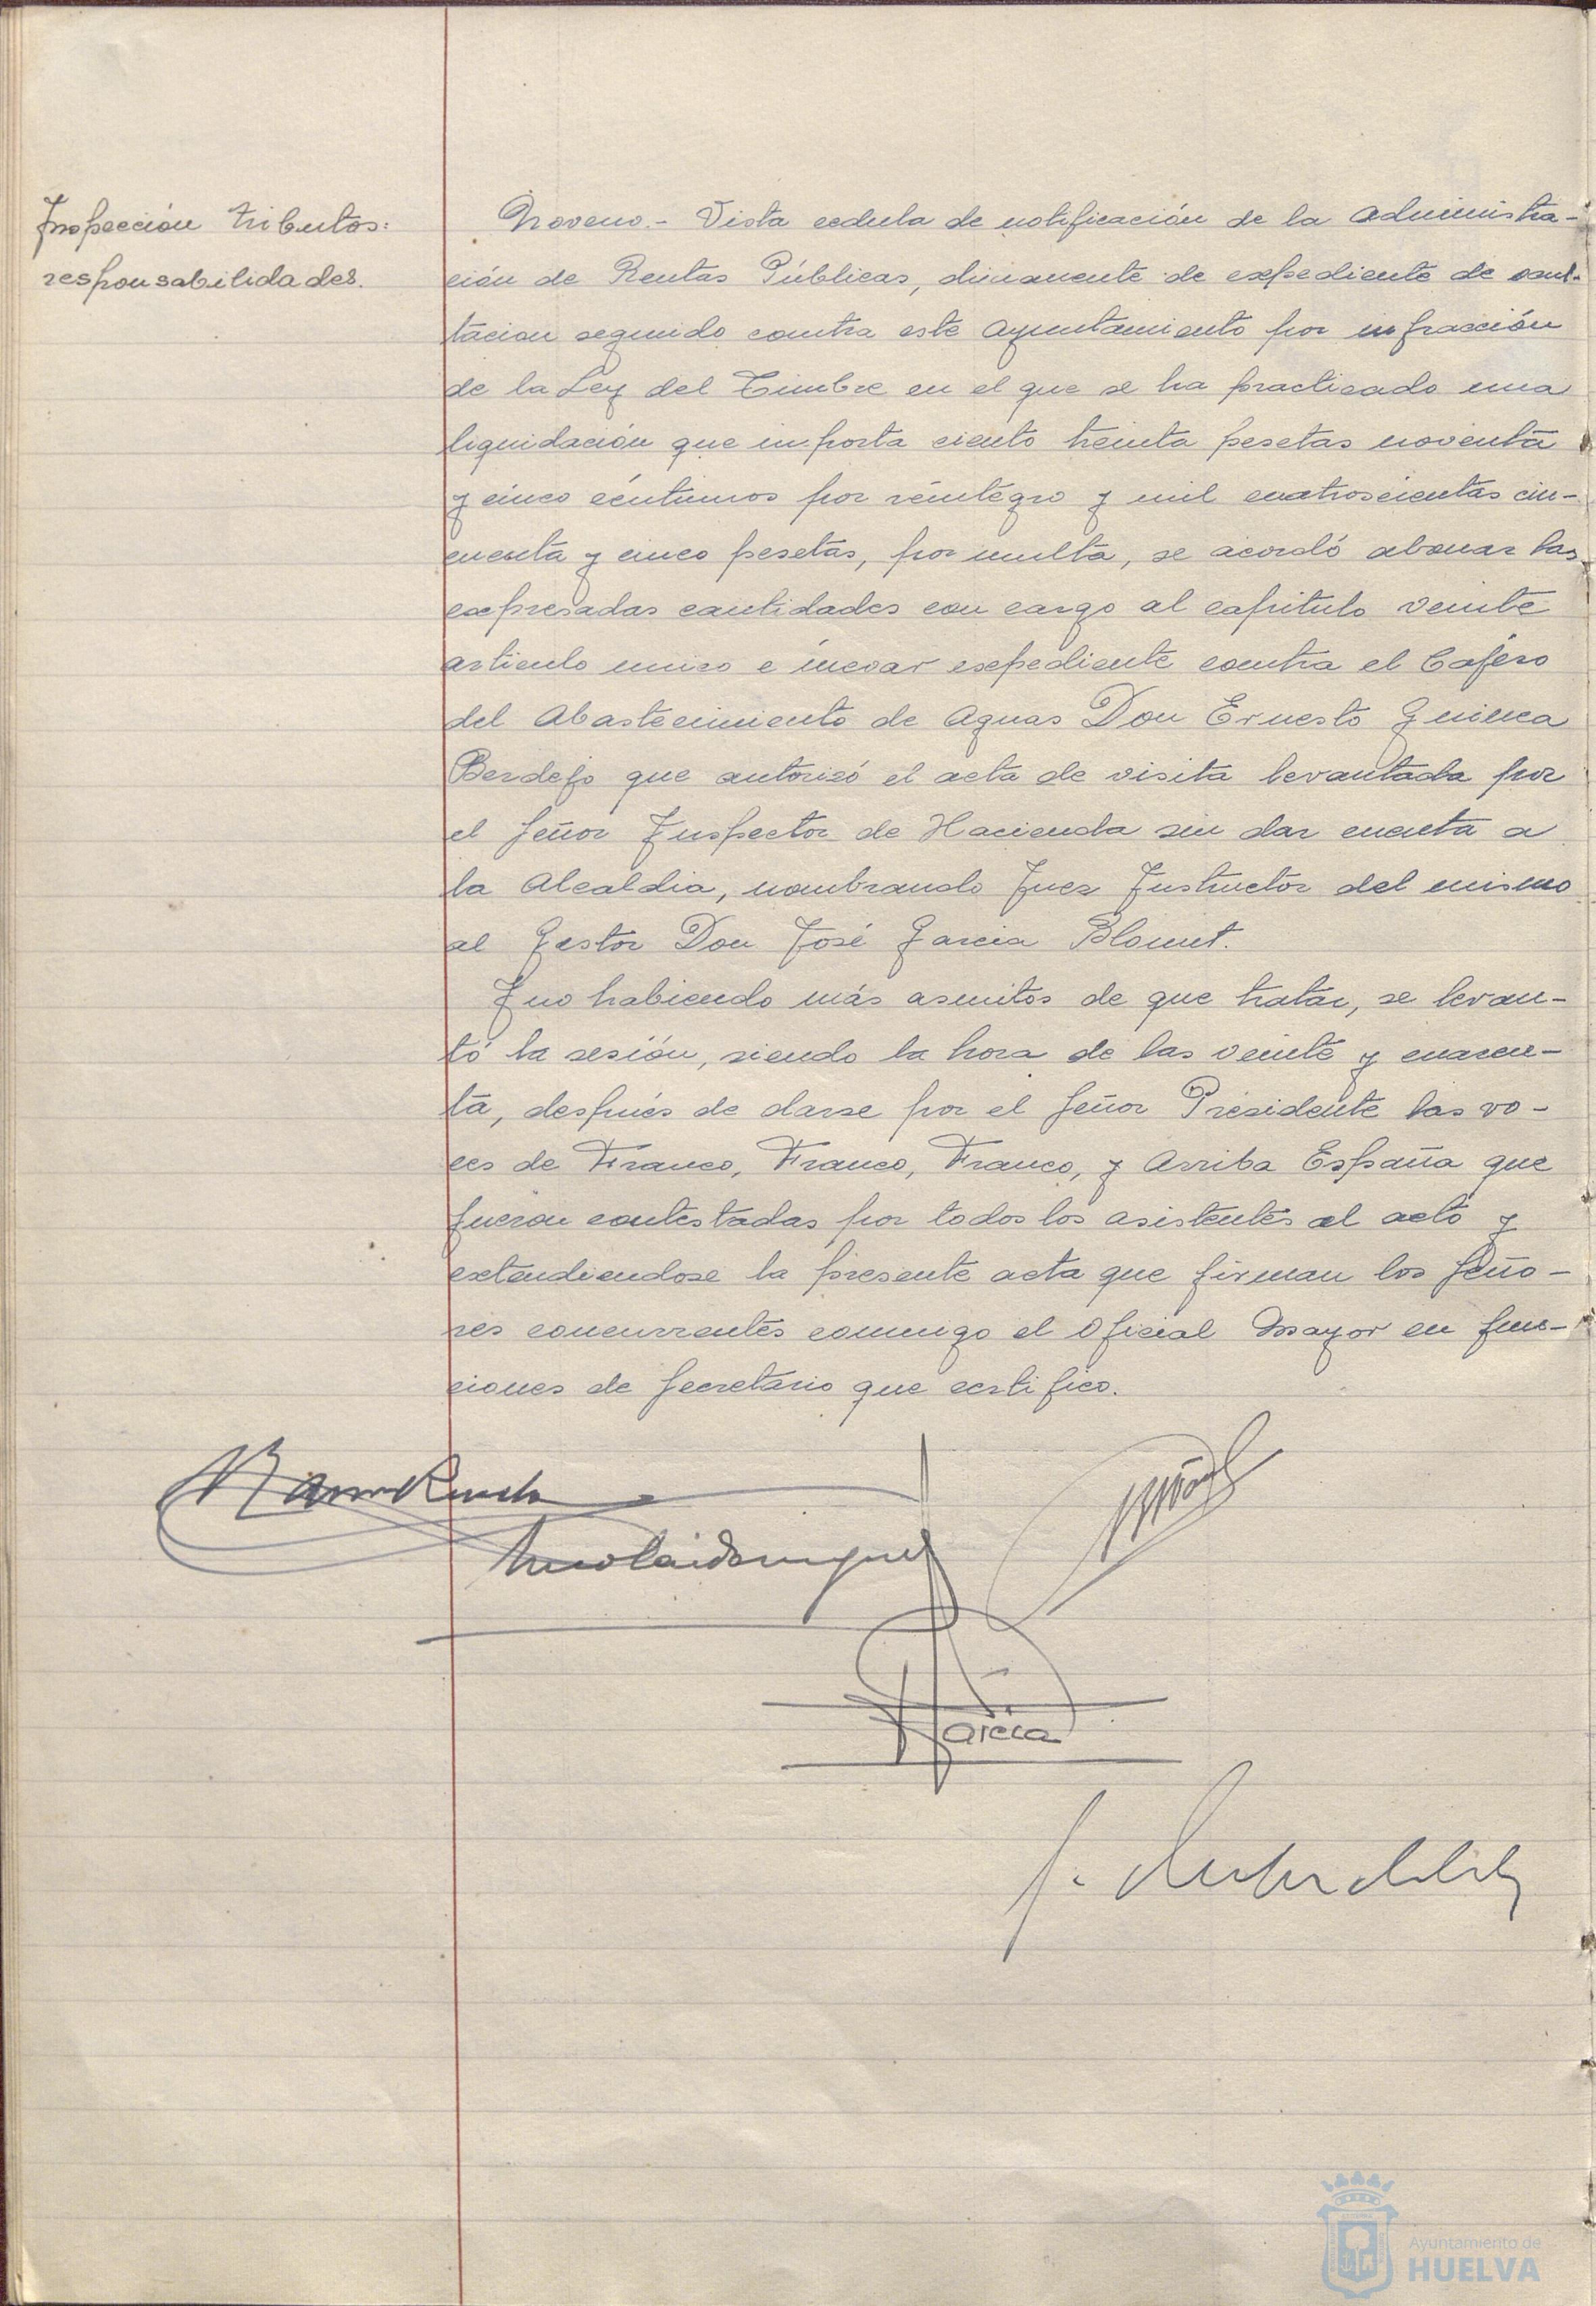 Inspección tributos:
responsabilidades.
Noveno.- Vista cedula de notificación de la Administra-
ción de Rentas Públicas, dimanente de expediente de ocul-
tacion seguido contra este Ayuntamiento por infracción
de la Ley del Timbre en el que se ha practicado una
liquidación que importa ciento treinta pesetas noventa
y cinco céntimos por reintegro y mil cuatroscientas cin-
cuenta y cinco pesetas, por multa, se acordó abonar las
expresadas cantidades con cargo al capitulo veinte
articulo unico e incoar expediente contra el Cajero
del Abastecimiento de Aguas Don Ernesto
Berdejo que autorizó el acta de visita levantada por
el Señor Inspector de Hacienda sin dar cuenta a
la Alcaldia, nombrando Juez Instructor del mismo
al Gestor Don José Garcia
Y no habiendo más asuntos de que tratar, se levan-
tó la sesión, siendo la hora de las veinte y cuaren-
ta, después de darse por el Señor Presidente las vo-
ces de Franco, Franco, Franco, y Arriba España que
fueron contestadas por todos los asistentes al acto y
extendiendose la presente acta que firman los Seño-
res concurrentes conmigo el Oficial Mayor en fun-
ciones de Secretario que certifico.
Garcia
Ayuntamiento de
HUELVA